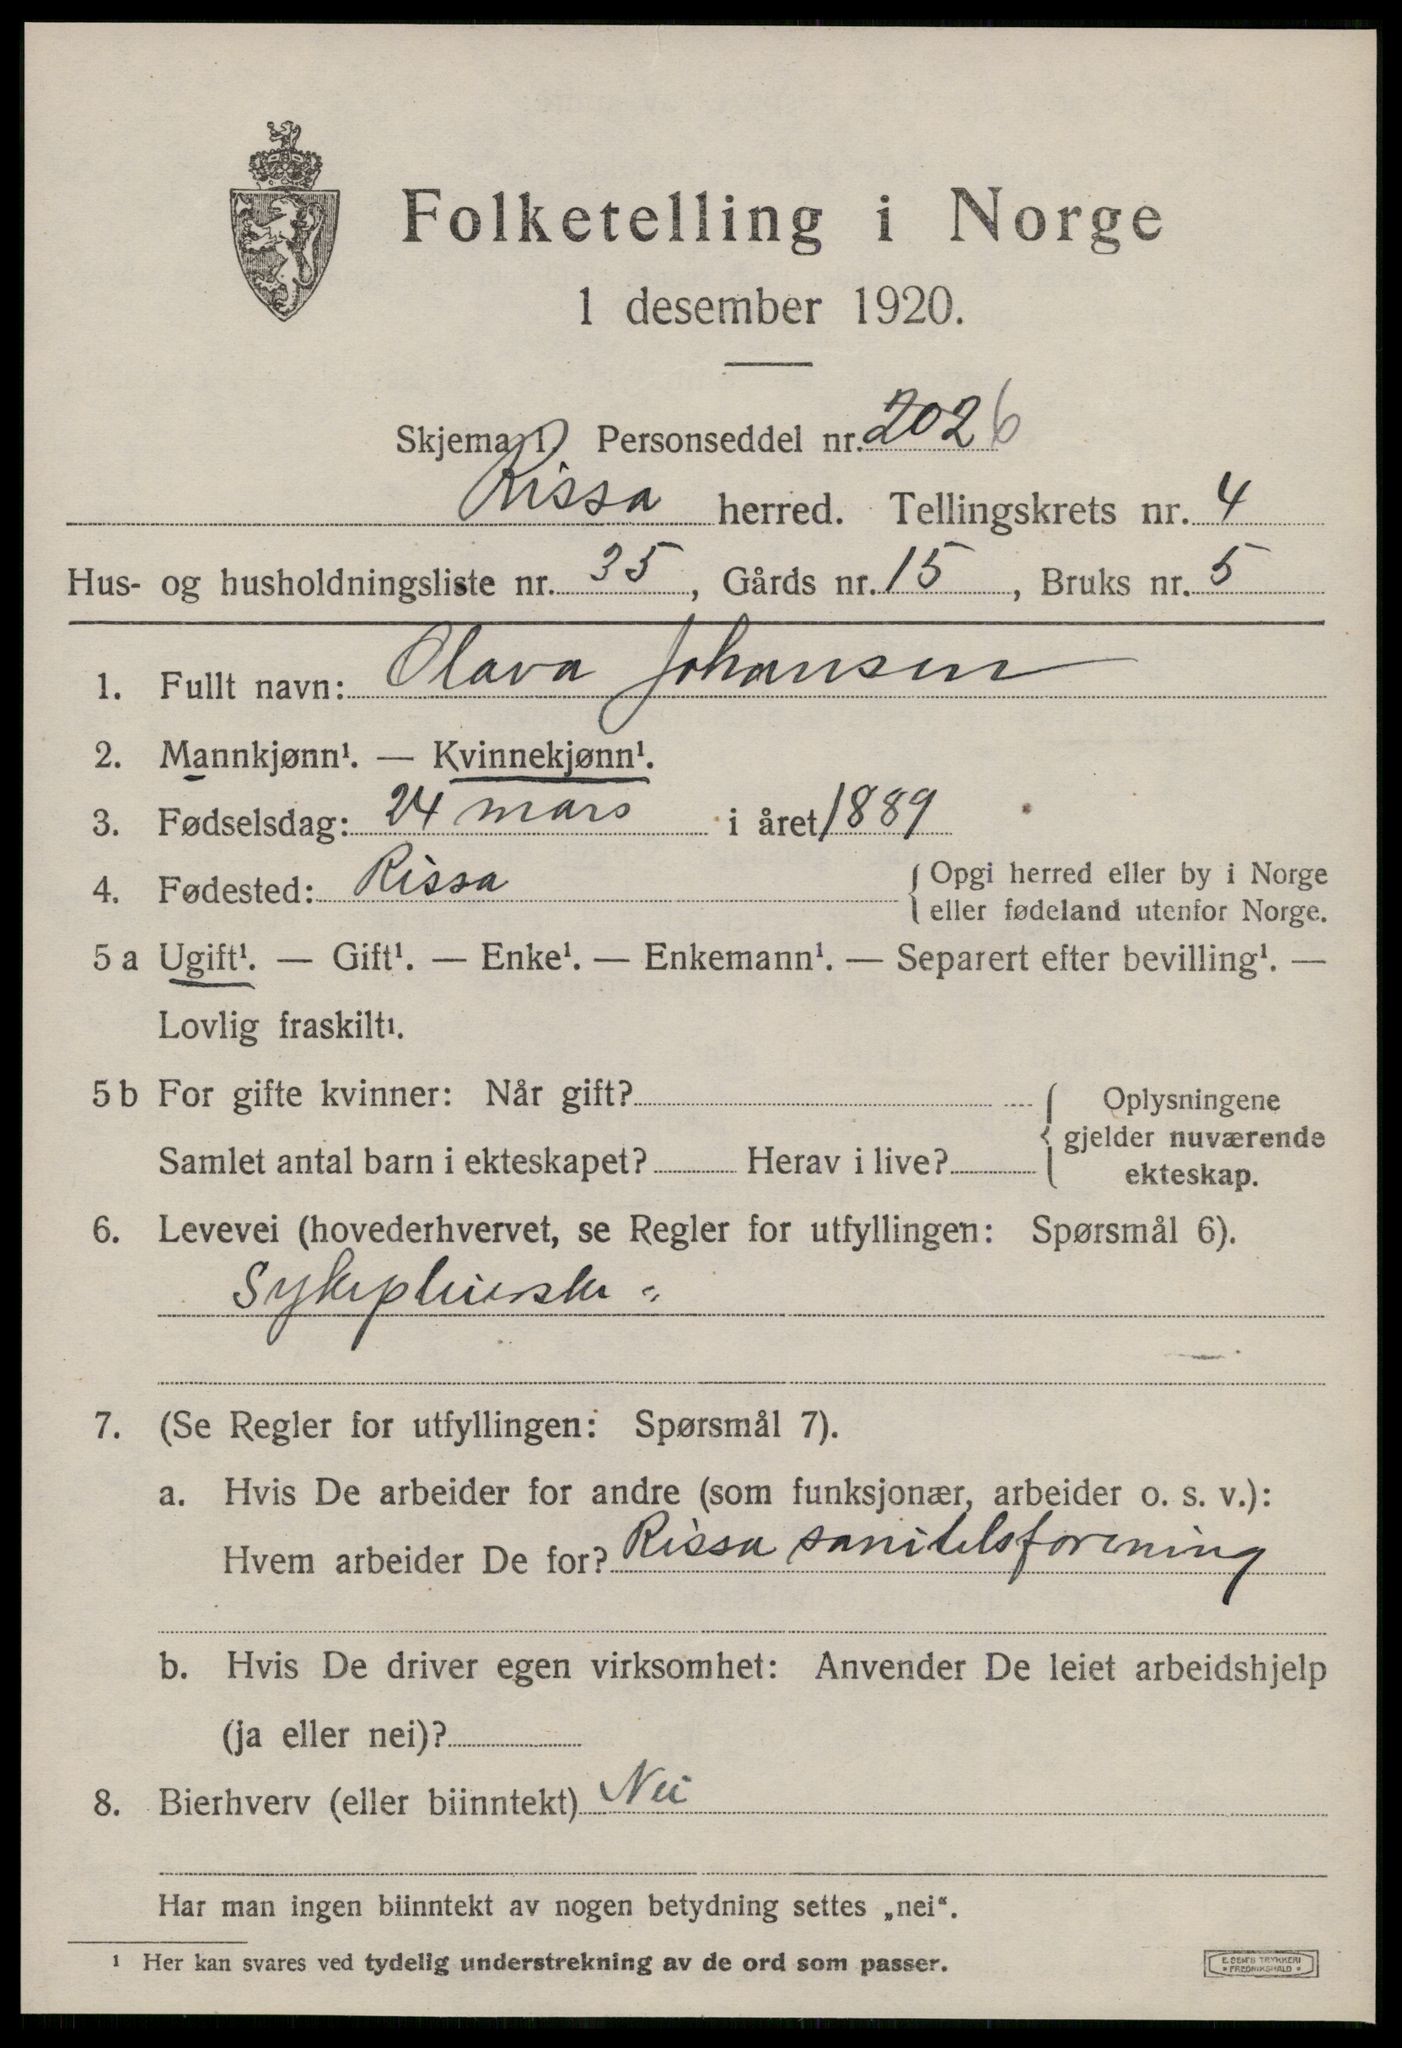 Folketelling i Norge
1 desember 1920.
Skjema 1 Personseddel nr. 2026
Rissa herred. Tellingskrets nr. 4
Hus- og husholdningsliste nr. 35, Gårds nr. 15, Bruks nr. 5
1. Fullt navn: Olava Johansen
2. Mannkjønn¹. — Kvinnekjønn¹.
3. Fødselsdag: 24 mars i året 1889
4. Fødested: Rissa { Opgi herred eller by i Norge
eller fødeland utenfor Norge.
5 a Ugift¹. — Gift¹. — Enke¹. — Enkemann¹. — Separert efter bevilling¹. —
Lovlig fraskilt¹.
5 b For gifte kvinner: Når gift? { Oplysningene
gjelder nuværende
Samlet antal barn i ekteskapet? Herav i live?
ekteskap.
6. Levevei (hovederhvervet, se Regler for utfyllingen: Spørsmål 6).
Sykepleierske
7. (Se Regler for utfyllingen: Spørsmål 7).
a. Hvis De arbeider for andre (som funksjonær, arbeider o. s. v.):
Hvem arbeider De for? Rissa sanitetsforening
b. Hvis De driver egen virksomhet: Anvender De leiet arbeidshjelp
(ja eller nei)?
8. Bierhverv (eller biinntekt) Nei
Har man ingen biinntekt av nogen betydning settes „nei“.
¹ Her kan svares ved tydelig understrekning av de ord som passer.
E. SEM'S TRYKKERI
FREDRIKSHALD